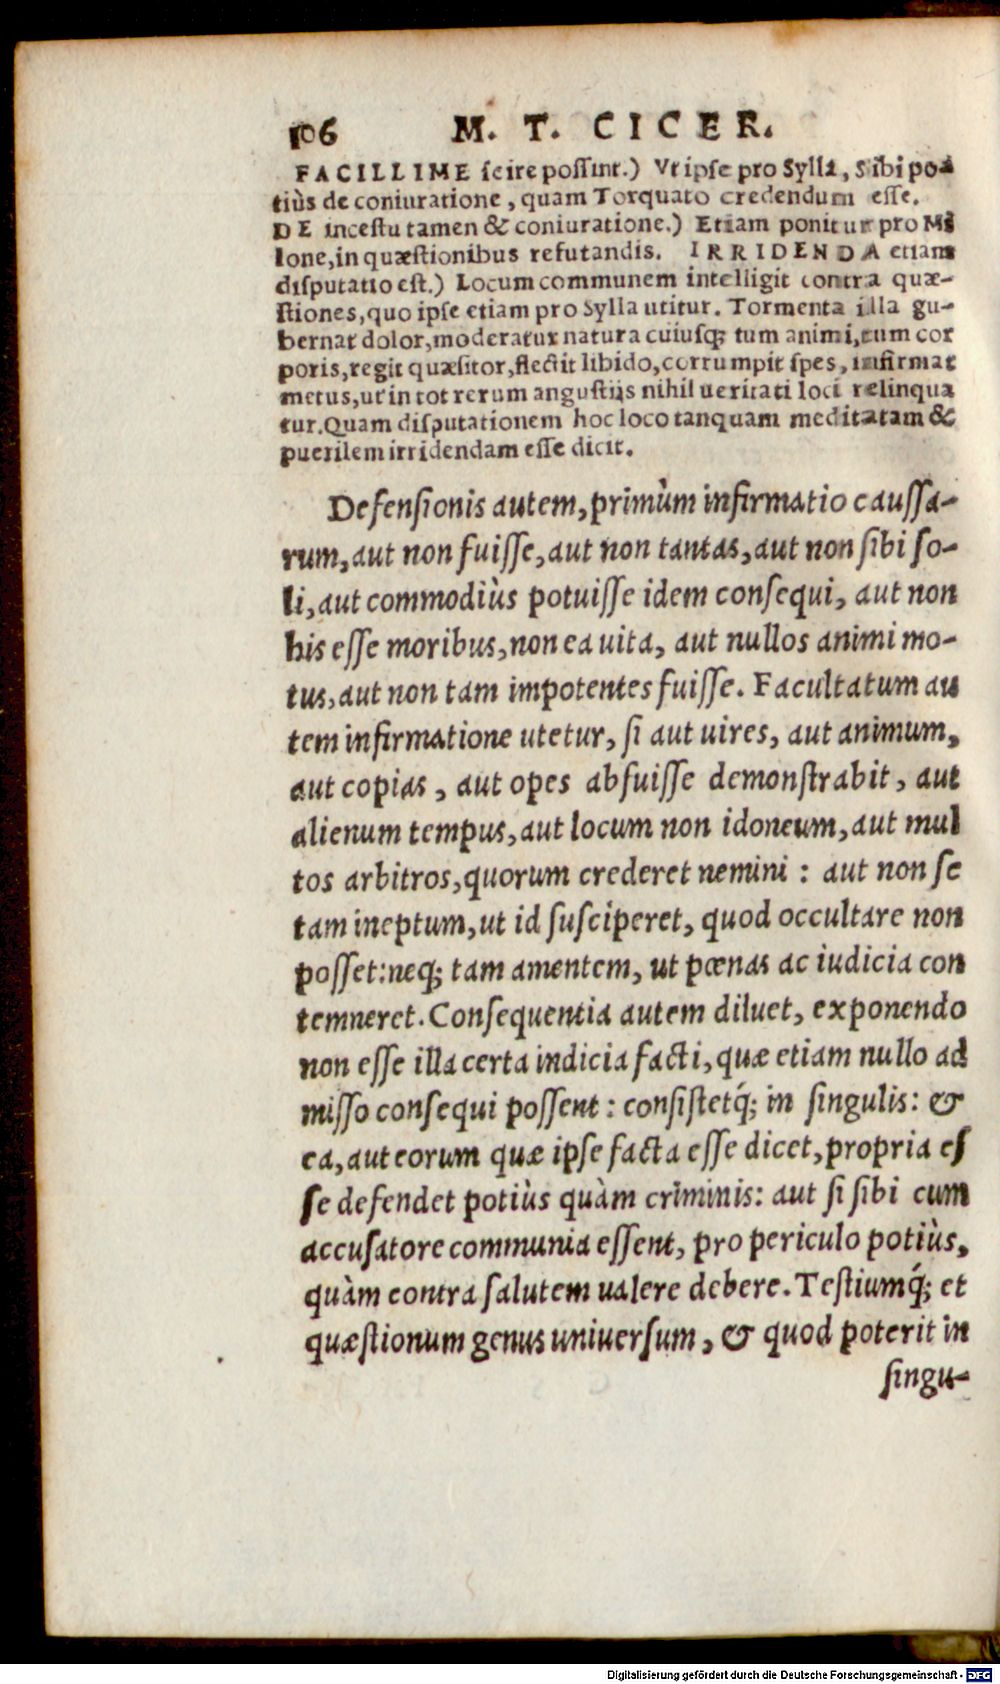 106 M. T. CICER.
FACILLIME scire possint.) Vt ipse pro Sylla, Sibi po-
tiùs de coniuratione, quam Torquato credendum esse.
DE incestu tamen & coniuratione.) Etiam ponitur pro Mi
lone, in quæstionibus refutandis. IRRIDENDA etiam
disputatio est.) Locum communem intelligit contra quæ-
stiones, quo ipse etiam pro Sylla utitur. Tormenta illa gu-
bernat dolor, moderatur natura cuiusq; tum animi, tum cor
poris, regit quæsitor, flectit libido, corrumpit spes, infirmat
metus, ut in tot rerum angustijs nihil ueritati loci relinqua
tur. Quam disputationem hoc loco tanquam meditatam &
puerilem irridendam esse dicit.
Defensionis autem, primùm infirmatio caussa-
rum, aut non fuisse, aut non tantas, aut non sibi so-
li, aut commodiùs potuisse idem consequi, aut non
his esse moribus, non ea uita, aut nullos animi mo-
tus, aut non tam impotentes fuisse. Facultatum au
tem infirmatione utetur, si aut uires, aut animum,
aut copias, aut opes abfuisse demonstrabit, aut
alienum tempus, aut locum non idoneum, aut mul
tos arbitros, quorum crederet nemini: aut non se
tam ineptum, ut id susciperet, quod occultare non
posset: neq; tam amentem, ut pœnas ac iudicia con
temneret. Consequentia autem diluet, exponendo
non esse illa certa indicia facti, quæ etiam nullo ad
misso consequi possent: consistetq́; in singulis: &
ea, aut eorum quæ ipse facta esse dicet, propria es
se defendet potiùs quàm criminis: aut si sibi cum
accusatore communia essent, pro periculo potiùs,
quàm contra salutem ualere debere. Testiumq́; et
quæstionum genus uniuersum, & quod poterit in
singu-
Digitalisierung gefördert durch die Deutsche Forschungsgemeinschaft - DFG